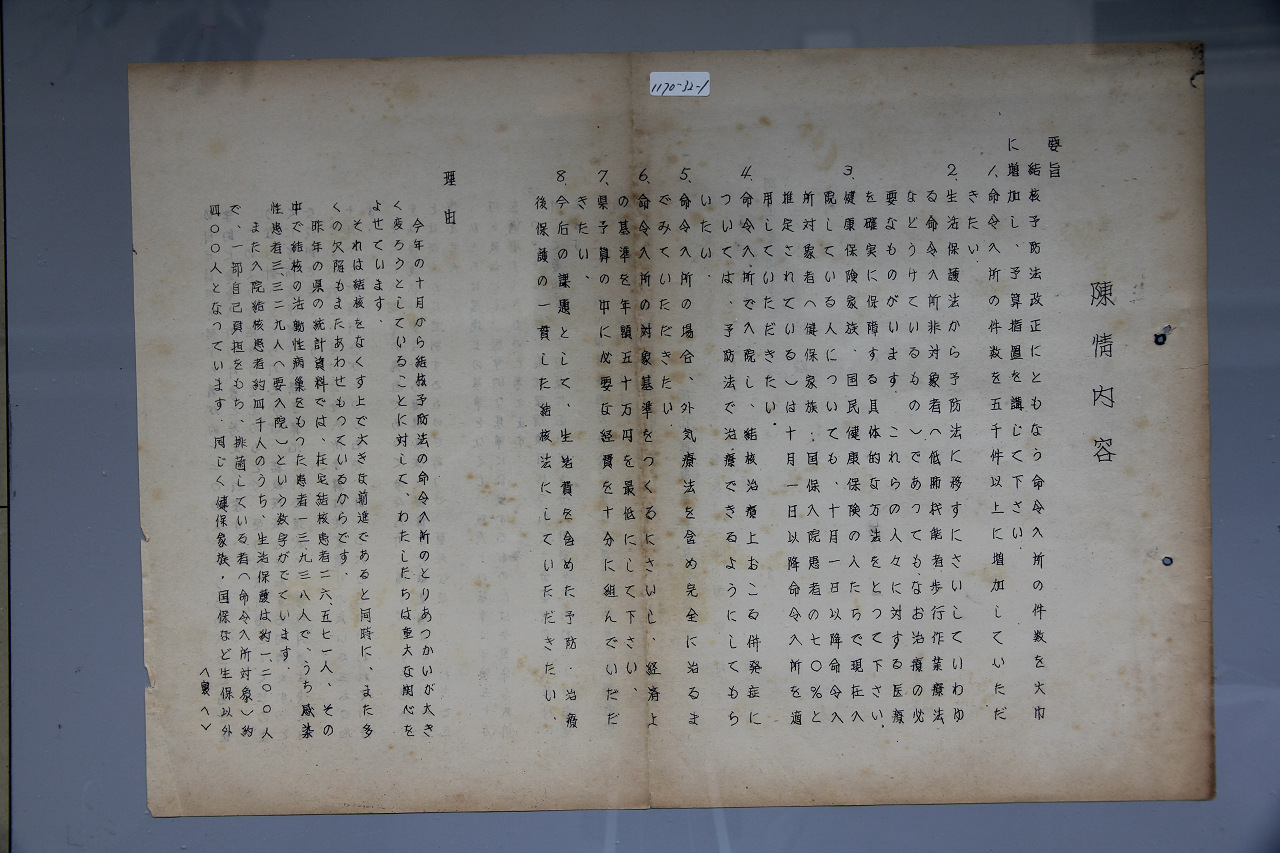 1170-32-1
陳情内容
要旨
結核予防法改正にともなう命令入所の件数を大巾
に増加し、予算指置を講じて下さい.
1.命令入所の件数を五千件以上に増加していただ
きたい.
2.生活保護法から予防法に移すにさいしていわゆ
る命令入所非対象者(低肺機能者歩行作業療法
などうけているもの)であってもなお治療の必
要なものがいます. これらの人々に対する医療
を確実に保障する具体的な方法をとって下さい.
3.健康保険家族、国民健康保険の人たちで現在入
院している人についても、十月一日以降命令入
所対象者(健保家族・国保入院患者の七〇%と
推定されている)は十月一日以降命令入所を適
用していただきたい.
4.命令入所で入院し、結核治療上おこる併発症に
ついては、予防法で治療できるようにしてもら
いたい.
5.命令入所の場合、外気療法を含め完全に治るま
でみていただきたい.
6.命令入所の対象基準をつくるにさいし、経済上
の基準を年額五十万円を最低にして下さい、
7.県予算の中に必要な経費を十分に組んでいただ
きたい、
8.今后の課題として、生活費を含めた予防・治療
後保護の一貫した結核法にしていただきたい、
理由
今年の十月から結核予防法の命令入所のとりあつかいが大き
く変ろうとしていることに対して、わたしたちは重大な関心を
よせています.
それは結核をなくす上で大きな前進であると同時に、また多
くの欠陥もまたあわせもっているからです.
昨年の県の統計資料では、在宅結核患者二六五七一人、その
中で結核の活動性病巣をもった患者一三九三八人で、うち感染
性患者三、三二九人(要入院)という数字がでています.
また入院結核患者約四千人のうち、生活保護は約一、二〇〇人
で、一部自己負担をもち、排菌している者(命令入所対象)約
四〇〇人となっています. 同じく健保家族・国保など生保以外
<裏へ>